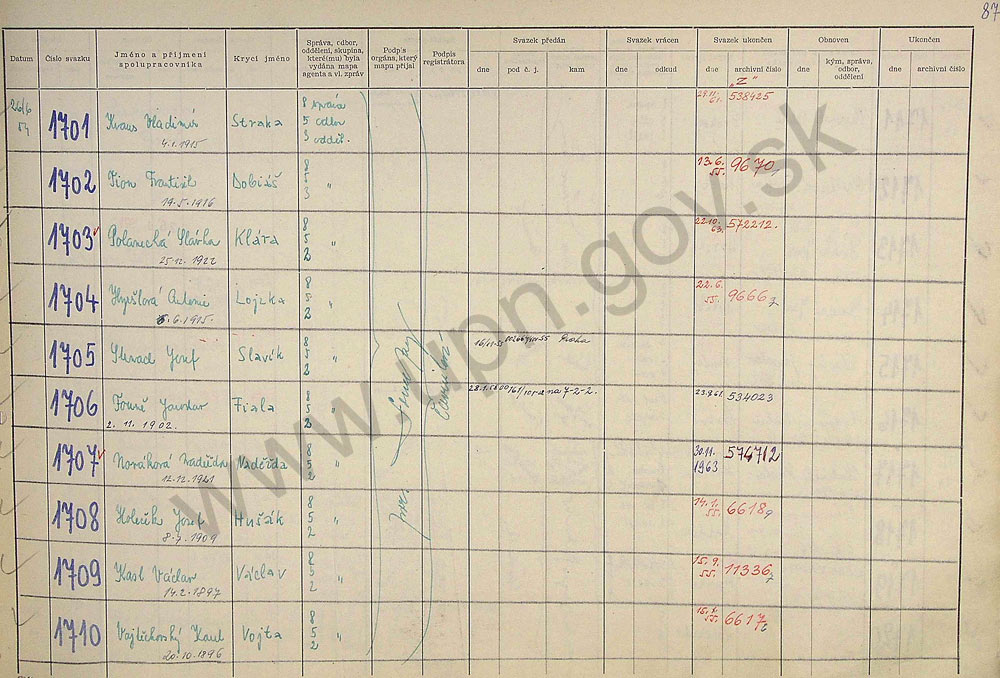 87
Datum
Číslo svazku
Jméno a příjmení
spolupracovníka
Krycí jméno
Správa, odbor,
oddělení, skupina,
které(mu) byla
vydána mapa
agenta a vl. zpráv
Podpis
orgána, který
mapu přijal
Podpis
registrátora
Svazek předán
dne
pod č. j.
kam
Svazek vrácen
dne
odkud
Svazek ukončen
dne
archivní číslo
"Z"
Obnoven
dne
kým, správa,
odbor,
oddělení
Ukončen
dne
archivní číslo
26/6
54
1701
Kraus Vladimír
4.1.1915
Straka
8 správa
5 odbor
3 odděl.
29.11.
61.
538425
1702
František
19.5.1916
Dobiáš
8
5
3
"
13.6.
55.
9670
1703
Polanecká Slávka
25.12.1922
Klára
8
5
2
"
22.10.
63.
572212.
1704
5.6.1915.
Lojzka
8
5
2
"
22.6.
55.
9666
1705
Josef
Slavík
8
5
2
"
Praha
1706
Jaroslav
2. 11. 1902.
Fiala
8
5
2
"
na 7-2-2.
534023
1707
Nováková Naděžda
12.12.1921
Naděžda
8
5
2
"
30.11.
1963
574712
1708
Josef
8.7.1909
Husák
8
5
2
"
14.1.
55.
6618
1709
Kasl Václav
14.2.1897
Václav
8
5
2
"
15.9.
55.
11336
1710
Karel
20.10.1896
Vojta
8
5
2
"
55.
6617
www.upn.gov.sk